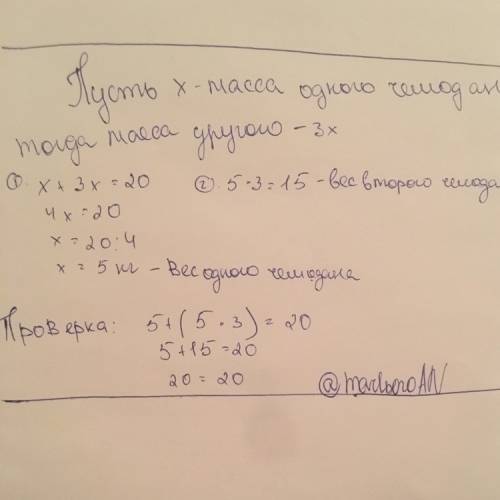 Пусть x - масса одного чемодан
тогда масса другого - 3x
① x + 3x = 20 ② 5 · 3 = 15 - вес второго чемода
4x = 20
x = 20 : 4
x = 5 кг - вес одного чемодана
Проверка: 5 + (5 · 3) = 20
5 + 15 = 20
20 = 20 @marlboroAN